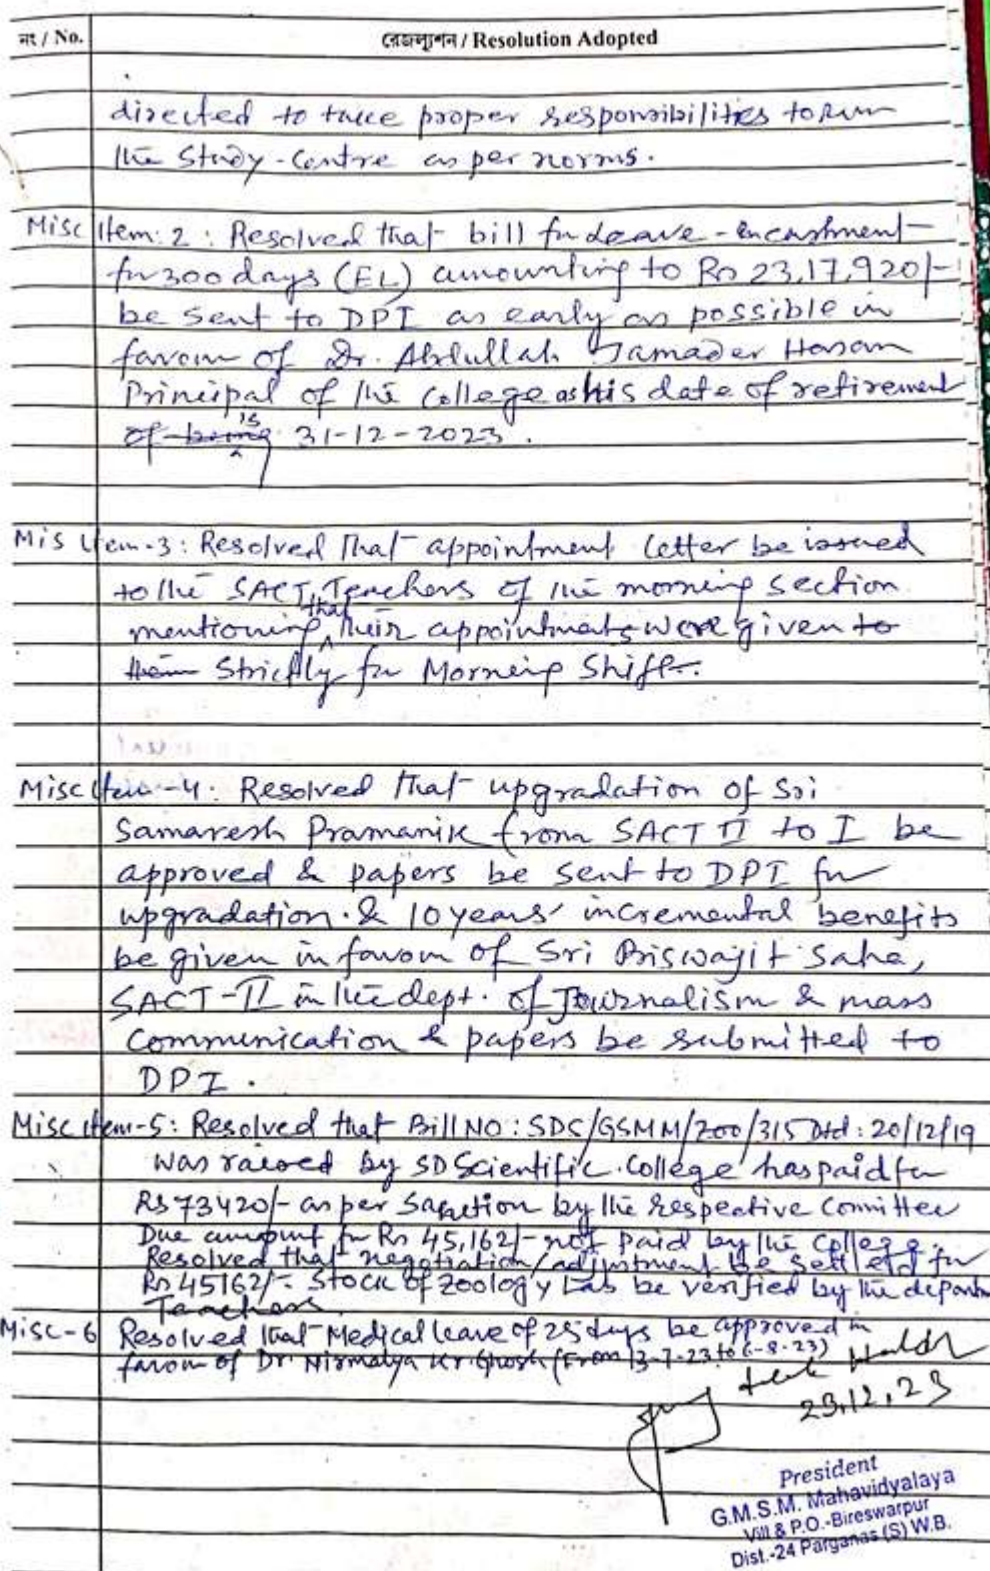 নং / No.
রেজল্যুশন / Resolution Adopted
directed to take proper responsibilities to run
the Study-Centre as per norms.
Misc Item: 2 : Resolved that bill for Leave-encashment
for 300 days (EL) amounting to Rs 23,17,920/-
be sent to DPI as early as possible in
favour of Dr. Abdullah Jamader Hasan
Principal of the College as his date of retirement
is
of being 31-12-2023.
Mis Item-3: Resolved that appointment letter be issued
to the SACT Teachers of the morning section
mentioning that their appointments were given to
them Strictly for Morning Shift.
Misc Item-4: Resolved that upgradation of Sri
Samaresh Pramanik from SACT II to I be
approved & papers be sent to DPI for
upgradation. & 10 years' incremental benefits
be given in favour of Sri Biswajit Saha,
SACT-II in the dept. of Journalism & mass
Communication & papers be submitted to
DPI.
Misc Item-5: Resolved that Bill NO: SDS/GSMM/Zoo/315 Dtd: 20/12/19
was raised by SD Scientific. College has paid for
Rs 73420/- as per Sanction by the respective Committee
Due amount for Rs 45,162/- not paid by the College.
Resolved that negotiation/adjustment be settled for
Rs 45162/-. Stock of Zoology Lab be verified by the
Teachers.
Misc-6 Resolved that Medical leave of 25 days be approved in
favour of Dr. Nirmalya Kr. Ghosh (From 13-7-23 to 6-8-23)
Haldr
23.12.23
President
G.M.S.M. Mahavidyalaya
Vill & P.O.-Bireswarpur
Dist.-24 Parganas (S) W.B.